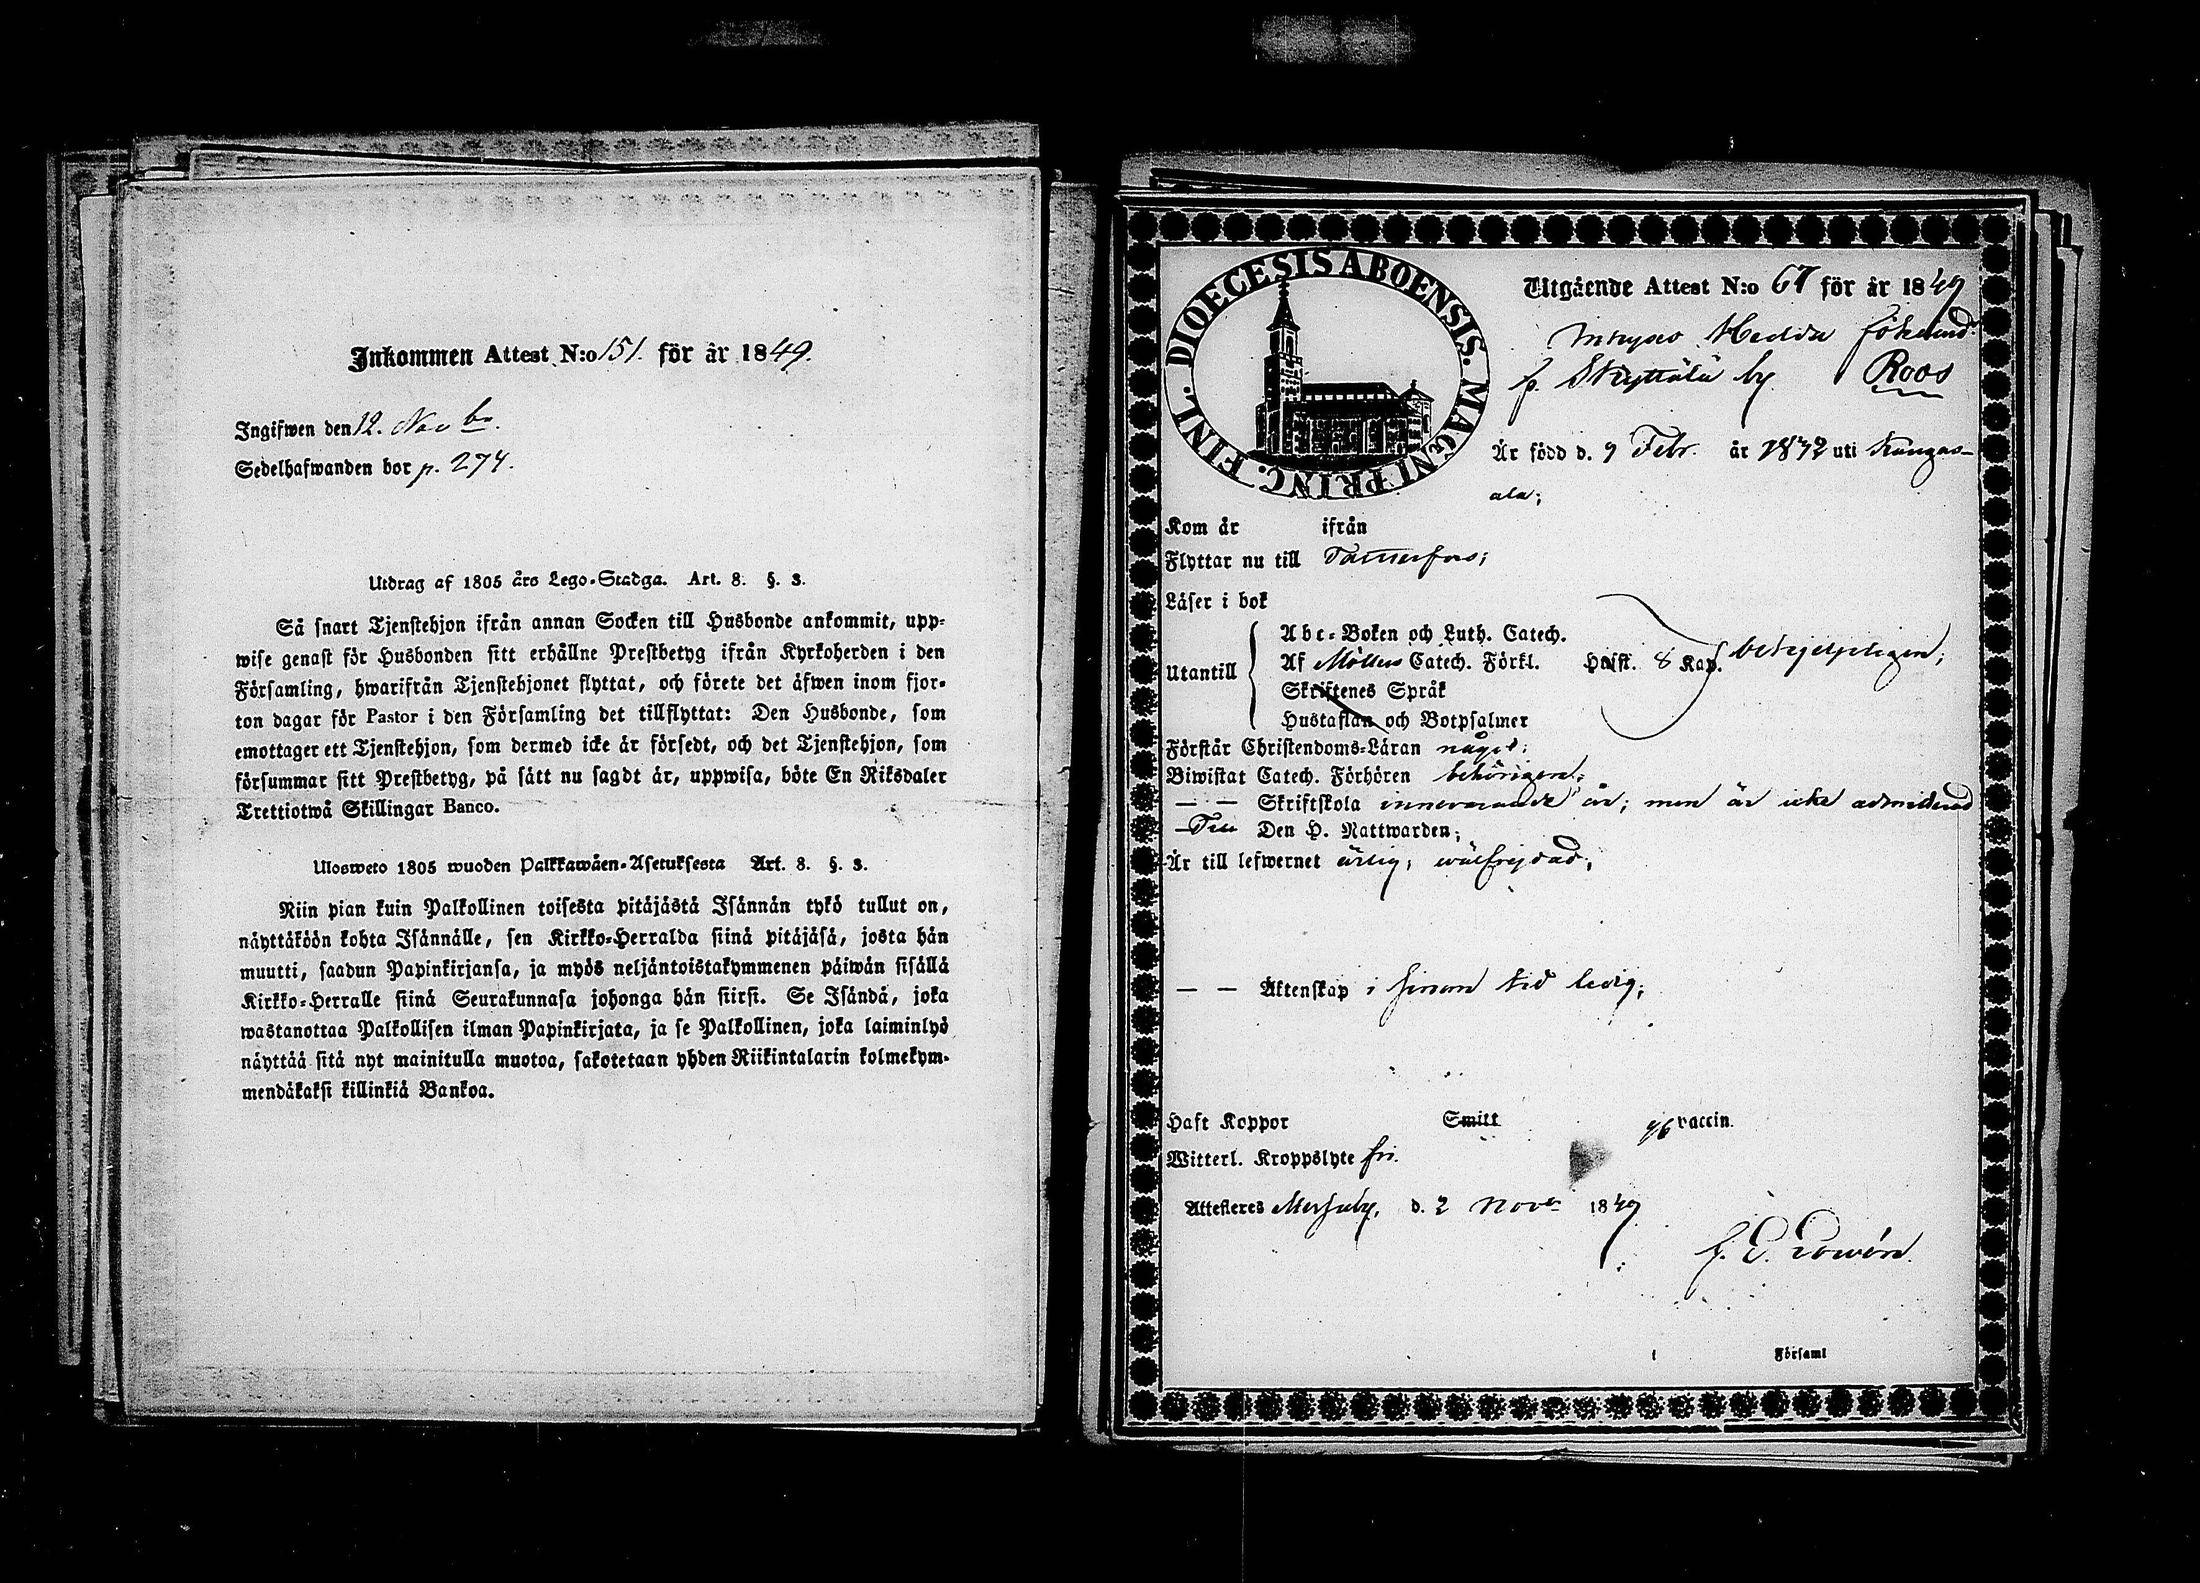 Inkommen Attest N:o 151. för år 1849.
Ingifwen den 12. Novbr.
Sedelhafwanden bor p. 274.
Utdrag af 1805 års Lego-Stadga. Art. 8. §. 3.
Så snart Tjenstehjon ifrån annan Socken till Husbonde ankommit, upp-
wise genast för Husbonden sitt erhållne Prestbetyg ifrån Kyrkoherden i den
Församling, hwarifrån Tjenstehjonet flyttat, och förete det äfwen inom fjor-
ton dagar för Pastor i den Församling det tillflyttat: Den Husbonde, som
emottager ett Tjenstehjon, som dermed icke är försedt, och det Tjenstehjon, som
försummar sitt Prestbetyg, på sätt nu sagdt är, uppwisa, böte En Riksdaler
Trettiotwå Skillingar Banco.
Ulosweto 1805 wuoden Palkkawäen-Asetuksesta Art. 8. §. 3.
Niin pian kuin Palkollinen toisesta pitäjästä Isännän tykö tullut on,
näyttäköön kohta Isännälle, sen Kirkko-Herralda siinä pitäjäsä, josta hän
muutti, saadun Papinkirjansa, ja myös neljäntoistakymmenen päiwän sisällä
Kirkko-Herralle siinä Seurakunnasa johonga hän siirsi. Se Isändä, joka
wastanottaa Palkollisen ilman Papinkirjata, ja se Palkollinen, joka laiminlyö
näyttää sitä nyt mainitulla muotoa, sakotetaan yhden Riikintalarin kolmekym-
mendäkaksi killinkiä Bankoa.
DIOECESIS ABOENSIS. MAGNI PRINC. FINL.
Utgående Attest N:o 67 för år 1849
Hedda
fr. Skyttälä by Roos
Är född d. 9 Febr. år 1832 uti Kangas-
ala;
Kom år ifrån
Flyttar nu till Tammerfors;
Läser i bok
Utantill
Abc-Boken och Luth. Catech.
Af Möllers Catech. Förkl. Häft. 8 Kap. behjelpligen;
Skriftenes Språk
Hustaflan och Botpsalmer
Förstår Christendoms-Läran något;
Biwistat Catech. Förhören behörigen;
— — Skriftskola innevarande år; men är icke admitterad
— Till Den H. Nattwarden;
Är till lefwernet ärlig, wälfrejdad;
— — Äktenskap i sinom tid ledig;
Haft Koppor Smitt vaccin.
Witterl. Kroppslyte fri.
Attesteres Messuby, d. 2 Novbr 1849
Församl